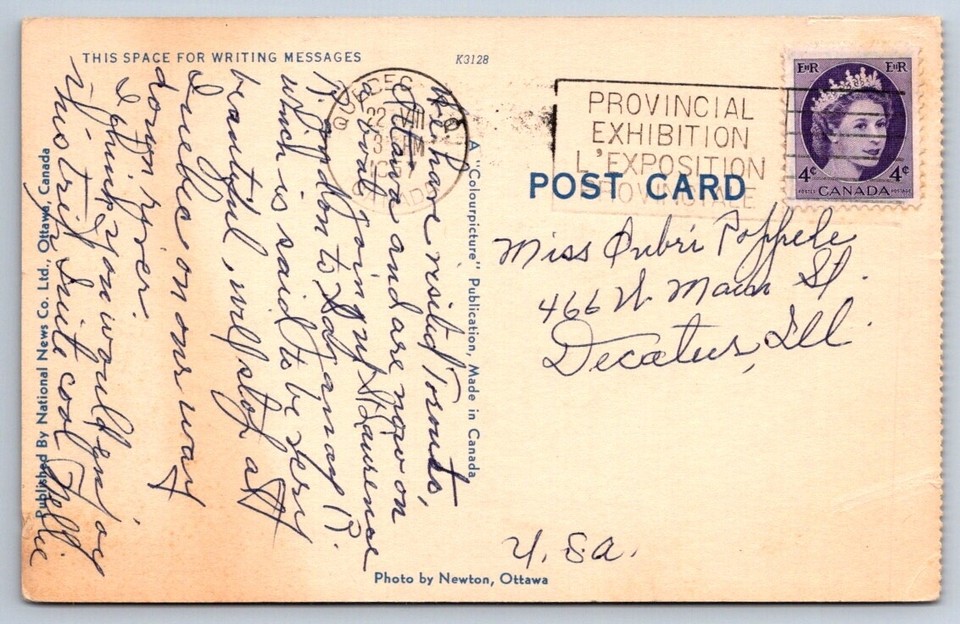 THIS SPACE FOR WRITING MESSAGES
K3128
We have visited Toronto,
Ottawa and are now on
a boat going up St Laurence
R. from
which is said to be very
beautiful, will stop at
Quebec on our way
down river.
I think you would enjoy
this trip. Quite cool
Nellie
Published By National News Co. Ltd., Ottawa, Canada
A "Colourpicture" Publication, Made in Canada
Photo by Newton, Ottawa
QUEBEC
CANADA
PROVINCIAL
EXHIBITION
L'EXPOSITION
PROVINCIALE
POST CARD
EIIR EIIR
4¢ 4¢
POSTES CANADA POSTAGE
Miss
466 W. Main St.
Decatur, Ill.
U.S.A.